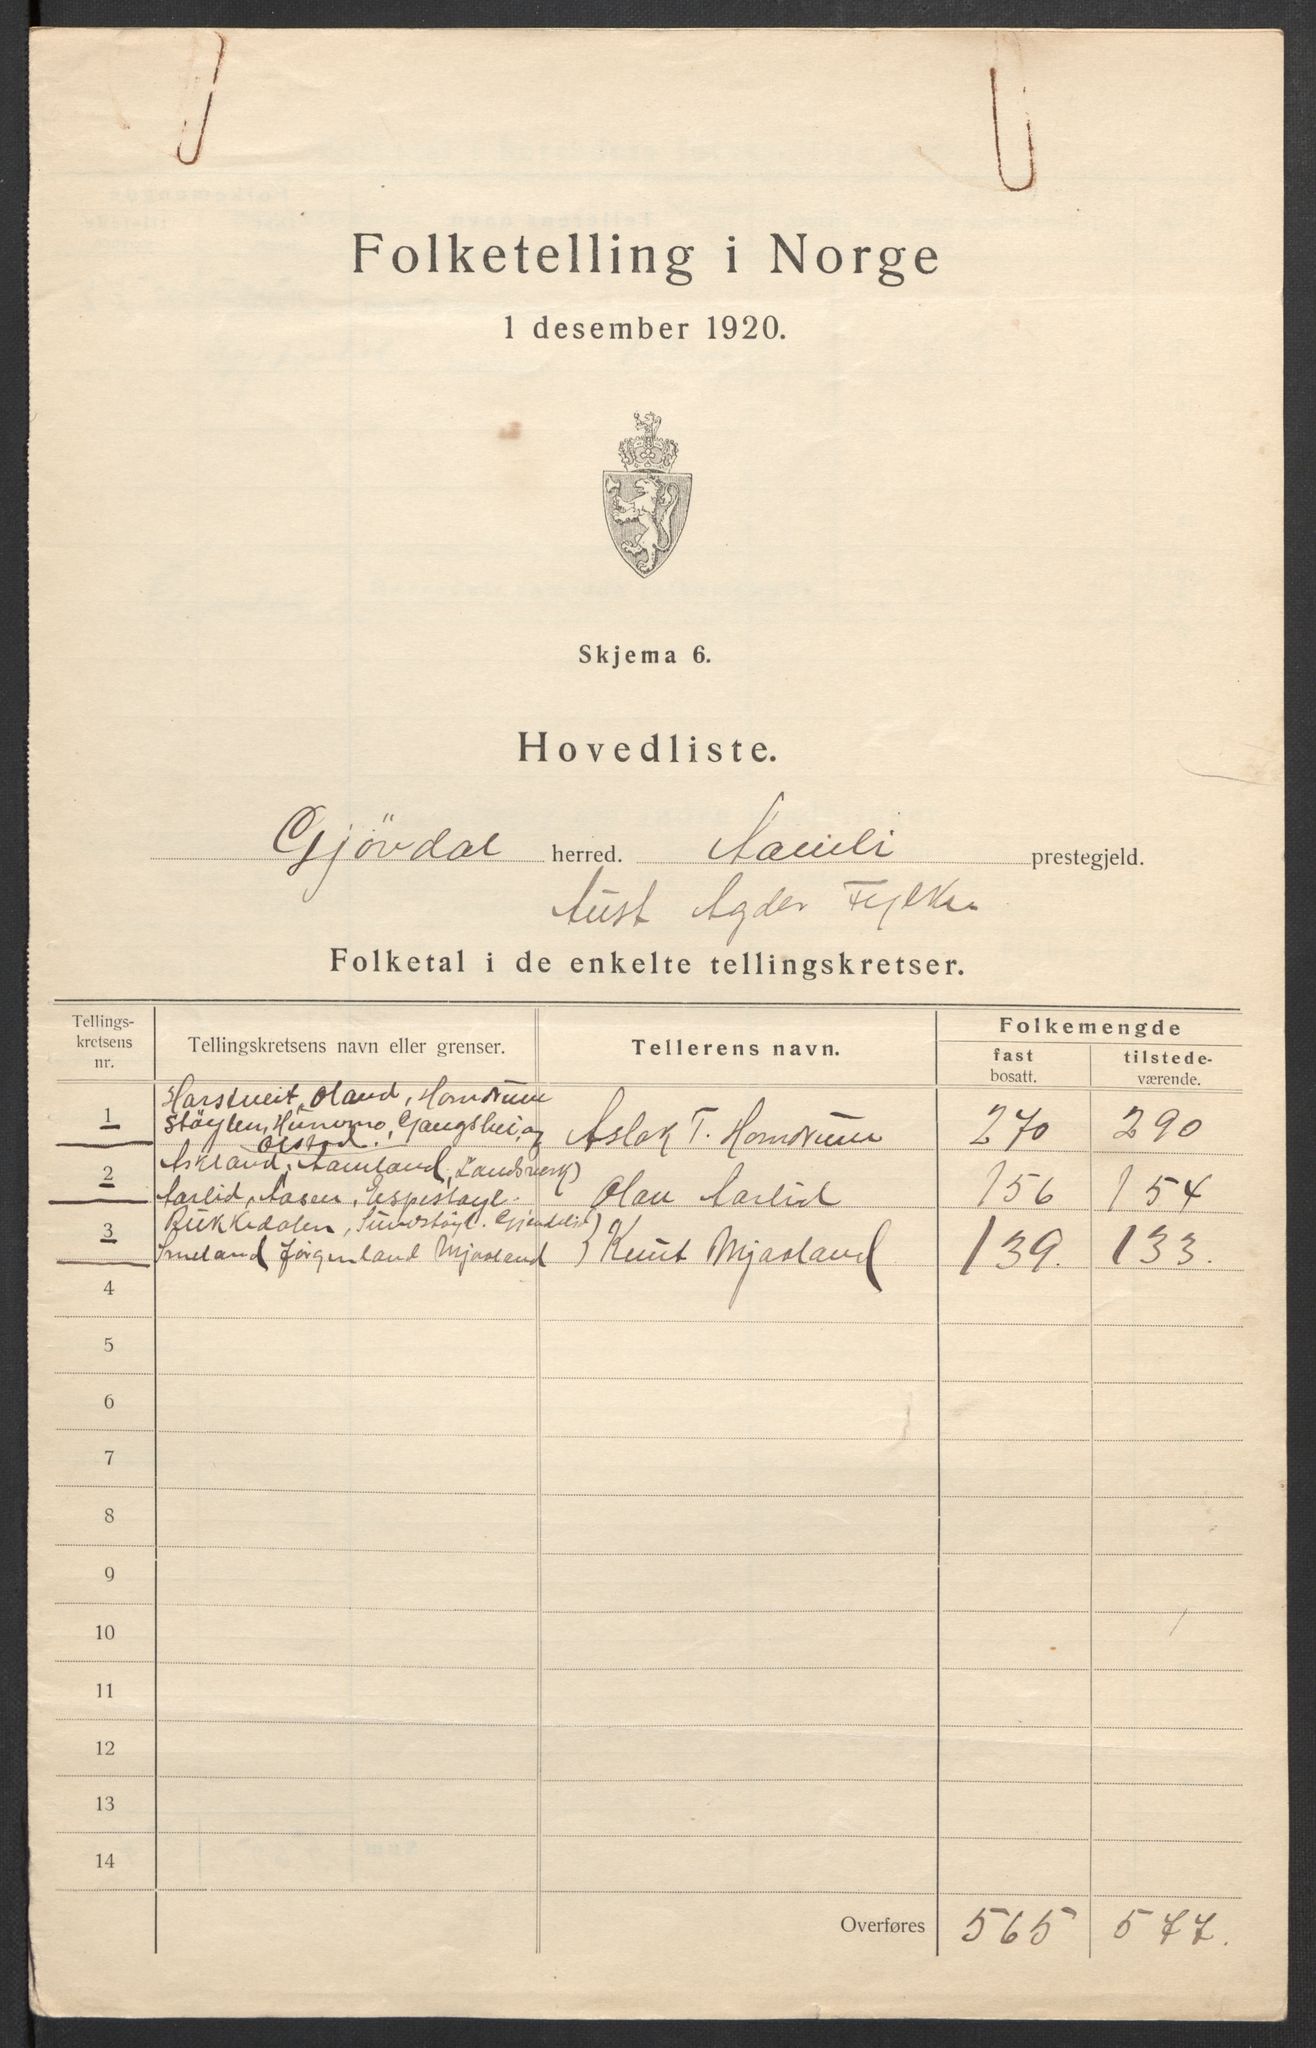 Folketelling i Norge
1 desember 1920.
Skjema 6.
Hovedliste.
Gjövdal herred. Aamli prestegjeld.
Aust Agder Fylke
Folketal i de enkelte tellingskretser.
Tellings-kretsens nr. Tellingskretsens navn eller grenser. Tellerens navn. Folkemengde
fast bosatt. tilstede-værende.
Harstveit, Oland, Homdrum
1 Støylen, Hunomo, Gangshei, og Aslak T. Homdrum 270 290
Olstad.
Askland, Aamland, Landsverk)
2 Aarlid, Aasen, Espestøyl. Olav Aarlid 156 154
Bukkedalen, Sundstøyl. Gjendalsl)
3 Smeland Jørgenland Mjaaland ) Knut Mjaaland 139. 133.
4
5
6
7
8
9
10
11
12
13
14
Overføres 565 577.